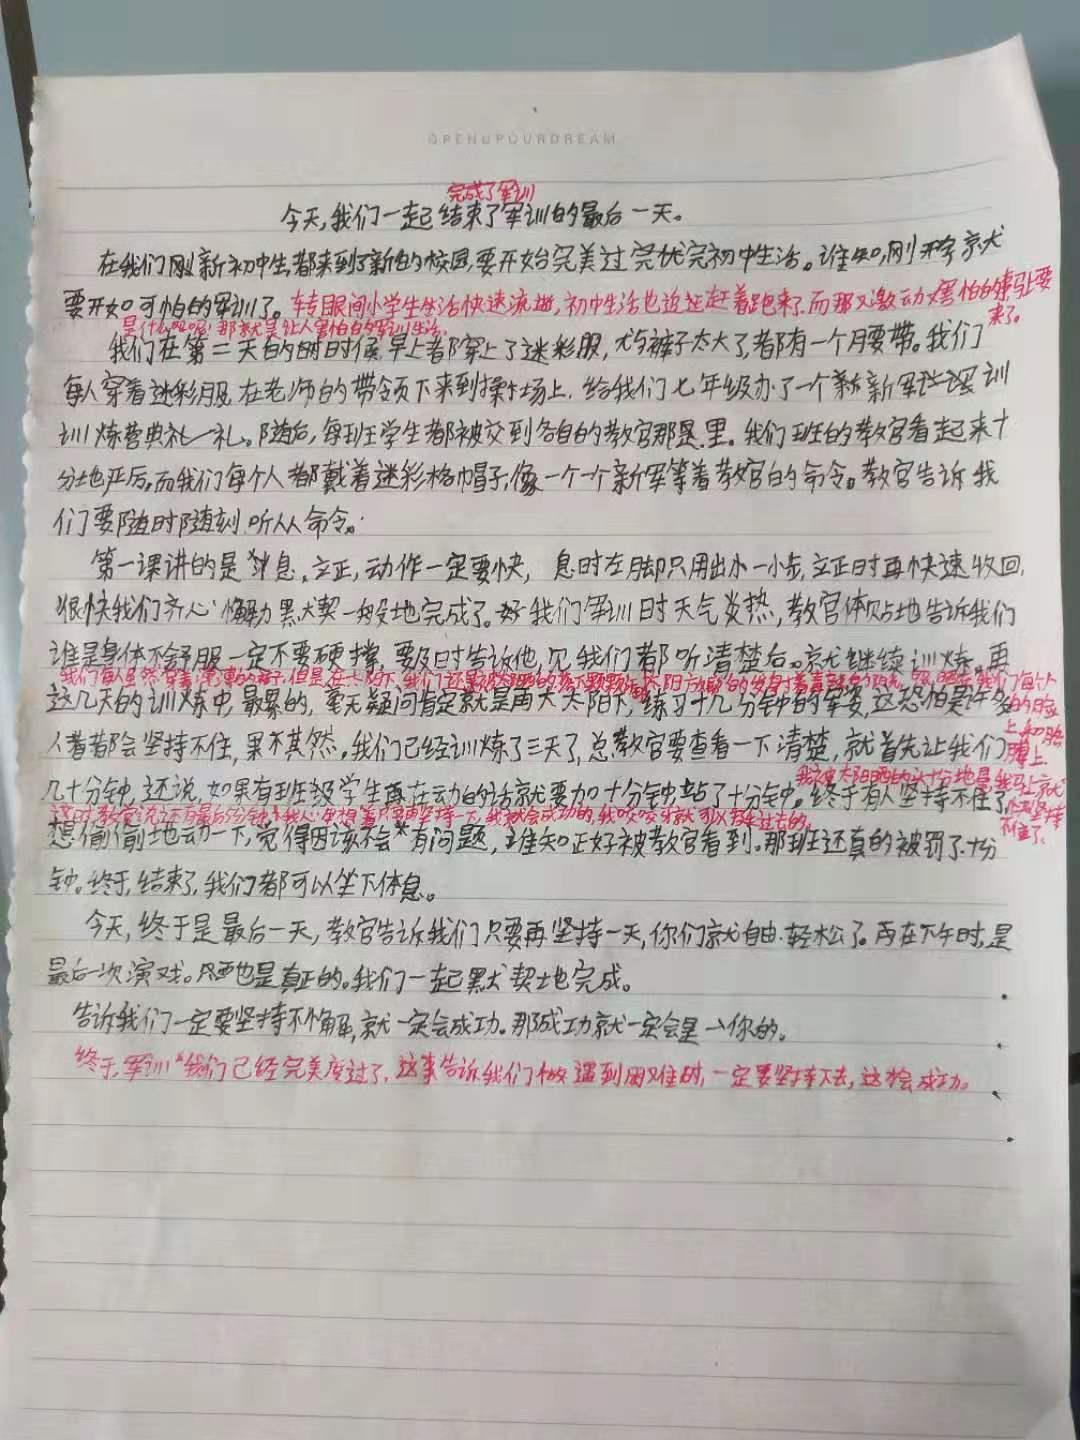 OPENUPOURDREAM
完成了军训
今天,我们一起结束了军训的最后一天。
在我们刚新初中生,都来到了新的校园,要开始完美过完初中生活。谁知,刚开学就
要开始可怕的军训了。转眼间小学生生活快速流逝,初中生活也近赶着跑来了,而那又激动又害怕的事马上要
来了。
是什么呢?那就是让人害怕的军训生活。
我们在第二天的时候,早上都穿上了迷彩服,裤子太大了,都有一个腰带。我们
每人穿着迷彩服在老师的带领下来到操场上,给我们七年级办了一个新军训
训炼营典礼。随后,每班学生都被交到各自的教官那里。我们班的教官看起来十
分地严厉,而我们每个人都戴着迷彩帽子,像一个个新军等着教官的命令。教官告诉我
们要随时随刻听从命令。
第一课讲的是稍息,立正,动作一定要快,息时左脚只用出小一小步,立正时再快速收回,
很快我们齐心默契一般地完成了。我们军训时天气炎热,教官体贴地告诉我们
谁是身体不舒服一定不要硬撑,要及时告诉他,见我们都听清楚后。就继续训炼。再
我们每人虽然穿着的裤子,但是在太阳下,我们还是
我们每个人
的脸
上和胳
膊上
这几天的训炼中,最累的,毫无疑问肯定就是南大太阳下,练习十几分钟的军姿,这恐怕是许多
人都会坚持不住,果不其然。我们已经训炼了三天了,总教官要查看一下清楚,就首先让我们
几十分钟,还说,如果有班级学生再在动的话就要加十分钟,站了十分钟。终于有人坚持不住了,
我被太阳晒的十分地
坚持
不住了。
这时,教官说还有最后5分钟,我心里想着只要再坚持一下,我就会成功的,我咬咬牙就可以挺过去的。
想偷偷地动一下,觉得因该不会有问题,谁知正好被教官看到。那班还真的被罚了十分
钟。终于,结束了,我们都可以坐下休息。
今天,终于是最后一天,教官告诉我们只要再坚持一天,你们就自由轻松了。再在下午时,是
最后一次演戏。也是真正的。我们一起默契地完成。
告诉我们一定要坚持不懈,就一定会成功。那成功就一定会是你的。
终于,军训我们已经完美度过了,这事告诉我们做遇到困难时,一定要坚持下去,这才会成功。